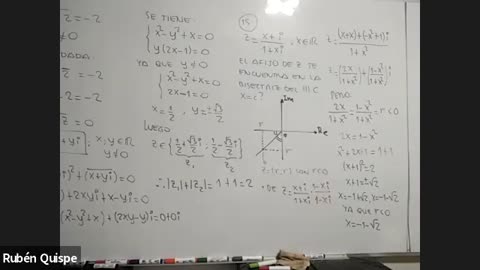 z̄ = -2
DADA:
z̄ = -2
z̄ = -2
z̄ = 0
+yi; x,y∈ℝ
y≠0
)²+(x+yi)=0
)+2xyi+x-yi=0
(x²-y²+x)+(2xy-y)i=0+0i
SE TIENE:
x²-y²+x=0
y(2x-1)=0
YA QUE y≠0
x²-y²+x=0
2x-1=0
x=1/2, y=±√3/2
LUEGO
z∈{1/2+√3/2i; 1/2-√3/2i}
z₁ z₂
∴|z₁|+|z₂|=1+1=2
15
z=x+i/1+xi, x∈ℝ
EL AFIJO DE Z TE
ENCUENTRA EN LA
BISECTRIZ DEL III C
x=¿?
Im
Re
r
r
z=(r,r) SON r<0
• DE z=x+i/1+xi·1-xi/1-xi
z=(x+x)+(-x²+1)i/1+x²
z=(2x/1+x²)+(1-x²/1+x²)i
PERO:
2x/1+x²=1-x²/1+x²=r<0
2x=1-x²
x²+2x+1=1+1
(x+1)²=2
x+1=±√2
x=-1+√2, x=-1-√2
YA QUE r<0
x=-1-√2
Rubén Quispe